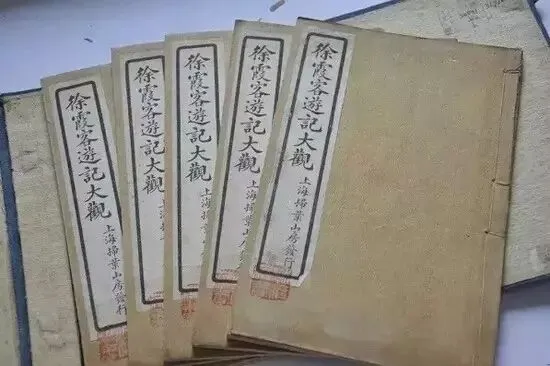 徐霞客遊記大觀
上海掃葉山房發行
徐霞客遊記大觀
上海
徐霞客遊記大觀
上海
徐霞客遊記大觀
上海掃葉山房
徐霞客遊記大觀
上海掃葉山房發行